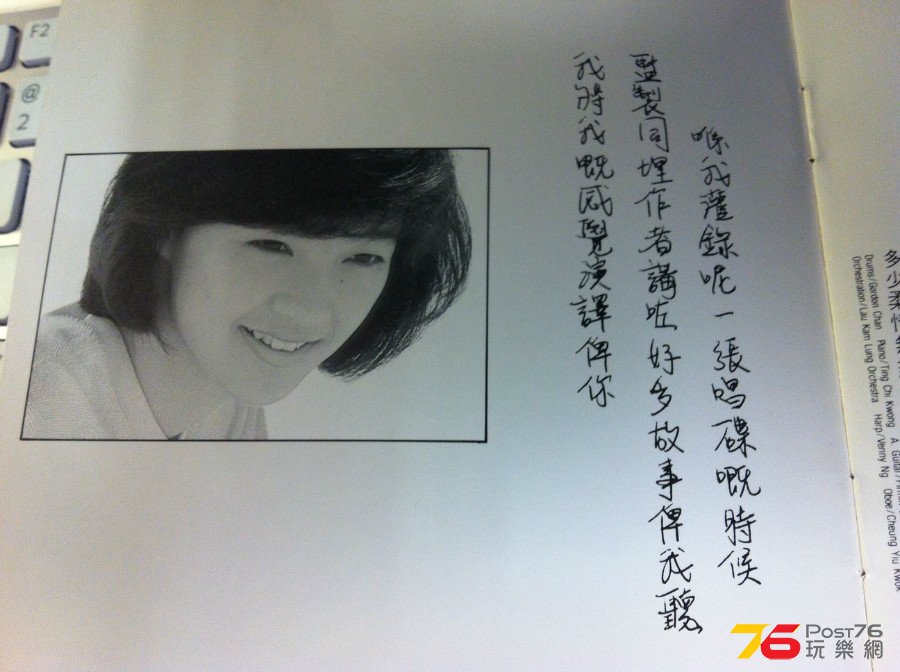 喺我灌錄呢一張唱碟嘅時候
監製同埋作者講咗好多故事俾我聽
我將我嘅感覺演譯俾你
多少柔情
Drums/Gordon Chan Piano/Ting Chi Kwong A. Guitar/
Orchestration/Lau Kam Lung Orchestra Harp/Venny Ng Oboe/Cheung Yiu Kwok
F2
@
2
76 Post76
玩樂網